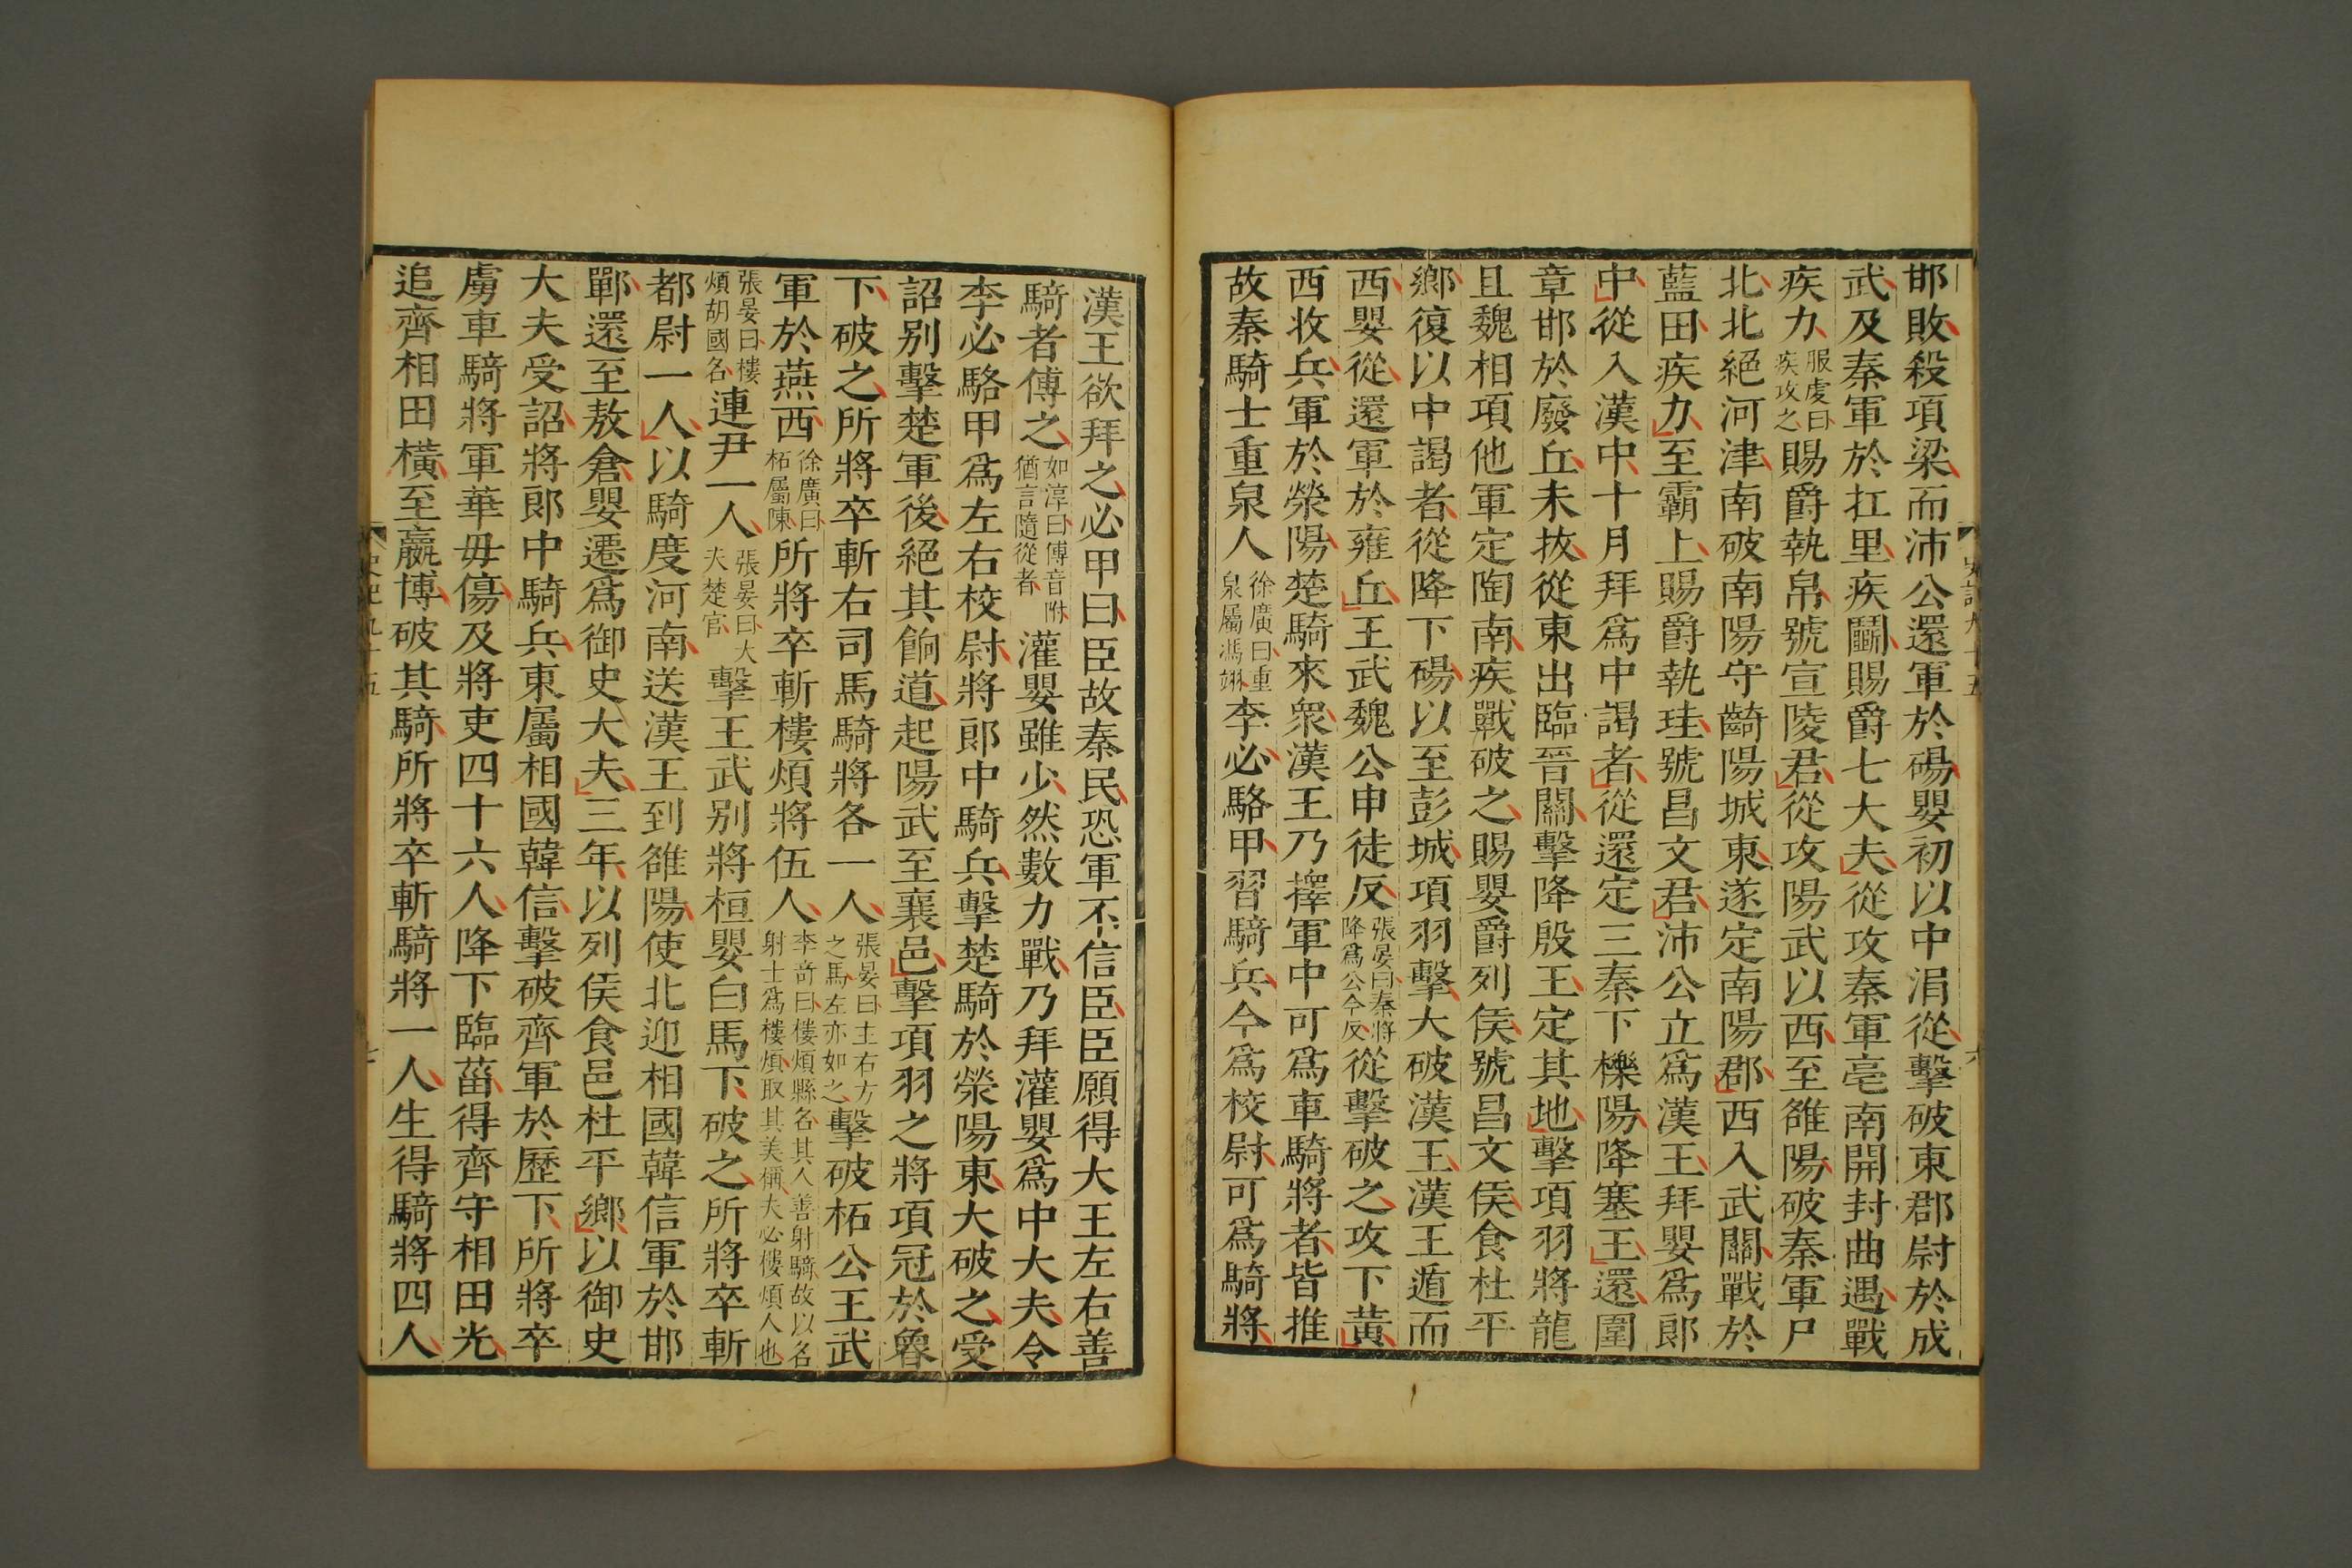 邯敗殺項梁而沛公還軍於碭嬰初以中涓從擊破東郡尉於成
武及秦軍於扛里疾鬭賜爵七大夫從攻秦軍亳南開封曲遇戰
疾力服虔曰疾攻之賜爵執帛號宣陵君從攻陽武以西至雒陽破秦軍尸
北北絕河津南破南陽守齮陽城東遂定南陽郡西入武關戰於
藍田疾力至霸上賜爵執珪號昌文君沛公立爲漢王拜嬰爲郎
中從入漢中十月拜爲中謁者從還定三秦下櫟陽降塞王還圍
章邯於廢丘未拔從東出臨晉關擊降殷王定其地擊項羽將龍
且魏相項他軍定陶南疾戰破之賜嬰爵列侯號昌文侯食杜平
鄉復以中謁者從降下碭以至彭城項羽擊大破漢王漢王遁而
西嬰從還軍於雍丘王武魏公申徒反張晏曰秦將降爲公今反從擊破之攻下黃
西收兵軍於滎陽楚騎來衆漢王乃擇軍中可爲車騎將者皆推
故秦騎士重泉人徐廣曰重泉屬馮翊李必駱甲習騎兵今爲校尉可爲騎將
漢王欲拜之必甲曰臣故秦民恐軍不信臣臣願得大王左右善
騎者傅之如淳曰傅音附猶言隨從者灌嬰雖少然數力戰乃拜灌嬰爲中大夫令
李必駱甲爲左右校尉將郎中騎兵擊楚騎於滎陽東大破之受
詔别擊楚軍後絕其餉道起陽武至襄邑擊項羽之將項冠於魯
下破之所將卒斬右司馬騎將各一人張晏曰主右方之馬左亦如之擊破柘公王武
軍於燕西徐廣曰柘屬陳所將卒斬樓煩將伍人李奇曰樓煩縣名其人善射騎故以名射士爲樓煩取其美稱大必樓煩人也
張晏曰樓煩胡國名連尹一人張晏曰大夫楚官擊王武别將桓嬰白馬下破之所將卒斬
都尉一人以騎度河南送漢王到雒陽使北迎相國韓信軍於邯
鄲還至敖倉嬰遷爲御史大夫三年以列侯食邑杜平鄉以御史
大夫受詔將郎中騎兵東屬相國韓信擊破齊軍於歷下所將卒
虜車騎將軍華毋傷及將吏四十六人降下臨菑得齊守相田光
追齊相田橫至嬴博破其騎所將卒斬騎將一人生得騎將四人